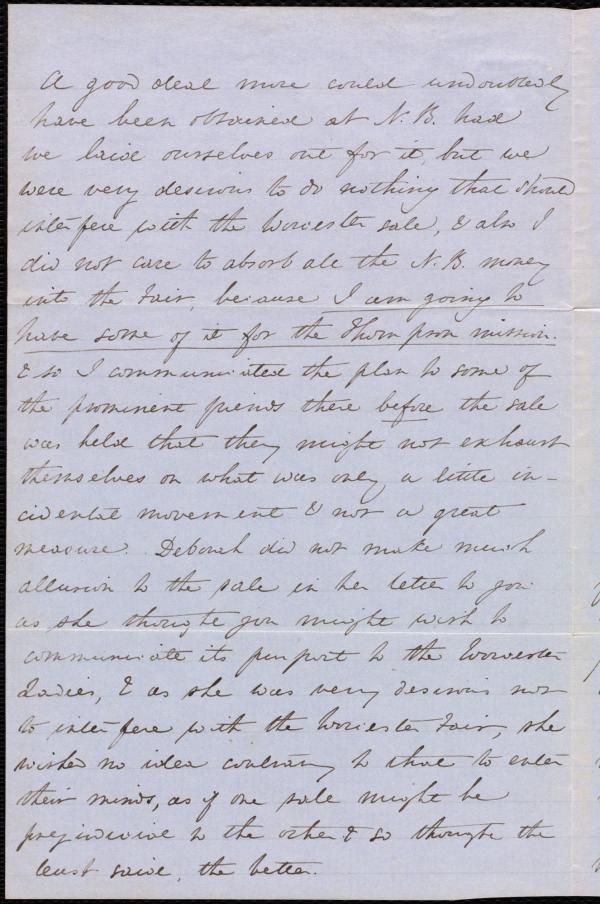 A good deal more could undoubtedly
have been obtained at N. B. had
we laid ourselves out for it, but we
were very desirous to do nothing that should
interfere with the Worcester sale, & also I
did not care to absorb all the N. B. money
into the Fair, because I am going to
have some of it for the Thompson mission.
& so I communicated the plan to some of
the prominent friends there before the sale
was held that they might not exhaust
themselves on what was only a little in-
cidental movement & not a great
measure. Deborah did not make much
allusion to the sale in her letter to you
as she thought you might wish to
communicate its purport to the Worcester
Ladies, & as she was very desirous not
to interfere with the Worcester Fair, she
wished no idea contrary to that to enter
their minds, as if one sale might be
prejudicial to the other & so thought the
least said, the better.